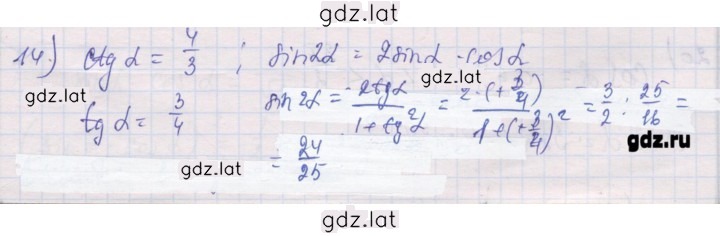 gdz.lat
14) ctg α = 4/3 ; sin2α = 2sinα · cos α
gdz.lat
gdz.lat
tg α = 3/4 sin2α = 2tgα / 1 + tg²α = 2·(+3/4) / 1+(+3/4)² = 3/2 : 25/16 =
gdz.lat
gdz.lat
гдз.ру
= 24/25
gdz.lat